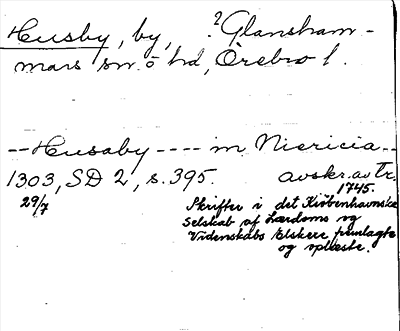 Husby, by, ? Glansham-
mars sn. o hd, Örebro l.
--Husaby---- in Niericia--
1303, SD 2, s. 395. avskr. av Tr.
29/7 1745.
Skrifter i det Kiöbenhavnske
Selskab af Lærdoms og
Videnskabs Elskere fremlagte
og oplæste.